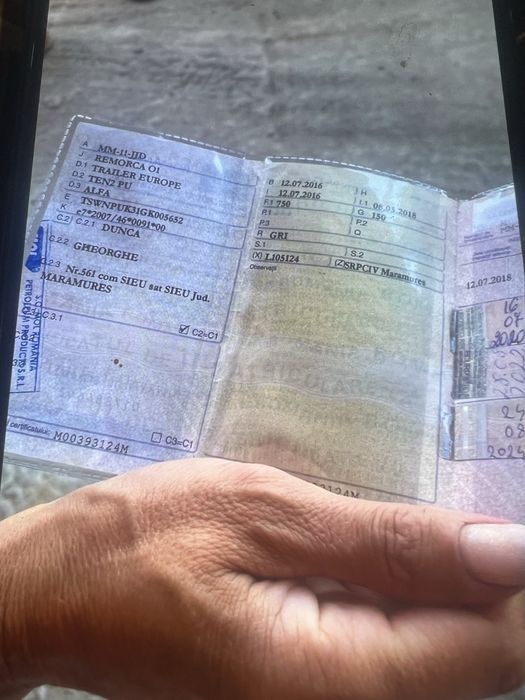 A MM-11-JJD
J REMORCA O1
D.1 TRAILER EUROPE
D.2 TEN2 PU
D.3 ALFA
E TSWNPUK31GK005652
K e7*2007/46*0091*00
C.2 C.2.1 DUNCA
C.2.2 GHEORGHE
C.2.3 Nr.561 com SIEU sat SIEU Jud.
MARAMURES
C.3.1
C2=C1
certificatului: M00393124M
C3=C1
S.C. MOL ROMANIA
PETROLEUM PRODUCTS S.R.L
B 12.07.2016
H
I 12.07.2016
I.1 08.05.2018
F.1 750
G 150
P.1
P.2
P.3
Q
R GRI
S.1
S.2
(X) L105124
(Z) SRPCIV Maramures
Observații
12.07.2018
16
07
2020
24
08
2024